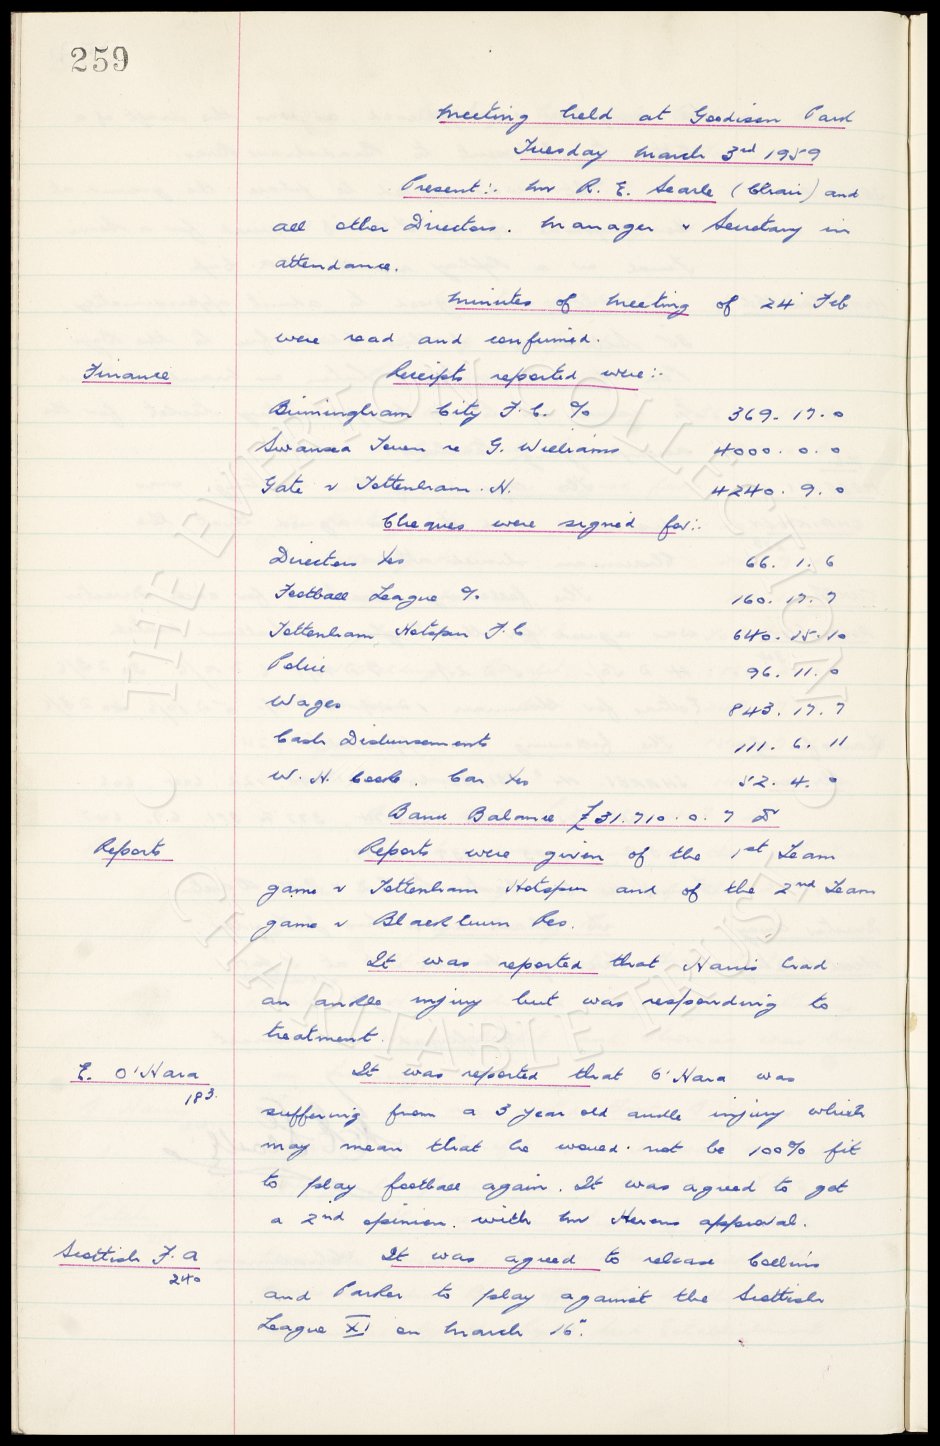 259
Meeting held at Goodison Park
Tuesday March 3rd 1959
Present:- Mr R. E. Searle (Chair) and
all other Directors. Manager & Secretary in
attendance.
Minutes of meeting of 24" Feb
were read and confirmed.
Finance
Receipts reported were:-
Birmingham City F.C. % 369. 17. 0
Swansea Town re G. Williams 4000. 0. 0
Gate v Tottenham. H. 4240. 9. 0
Cheques were signed for:-
Directors Xes 66. 1. 6
Football League % 160. 17. 7
Tottenham Hotspur F.C 640. 15. 10
Police 96. 11. 0
Wages 843. 17. 7
Cash Disbursements 111. 6. 11
W. H. Cook. Car Xes 52. 4. 0
Bank Balance £31.710. 0. 7 Dr
Reports
Reports were given of the 1st Team
game v Tottenham Hotspur and of the 2nd Team
game v Blackburn Res.
It was reported that Harris had
an ankle injury but was responding to
treatment.
E. O'Hara
183.
It was reported that O'Hara was
suffering from a 3 year old ankle injury which
may mean that he would not be 100% fit
to play football again. It was agreed to get
a 2nd opinion. with Mr approval.
Scottish F.A
240
It was agreed to release Collins
and Parker to play against the Scottish
League XI on March 16".
THE EVERTON COLLECTION
CHARITABLE TRUST